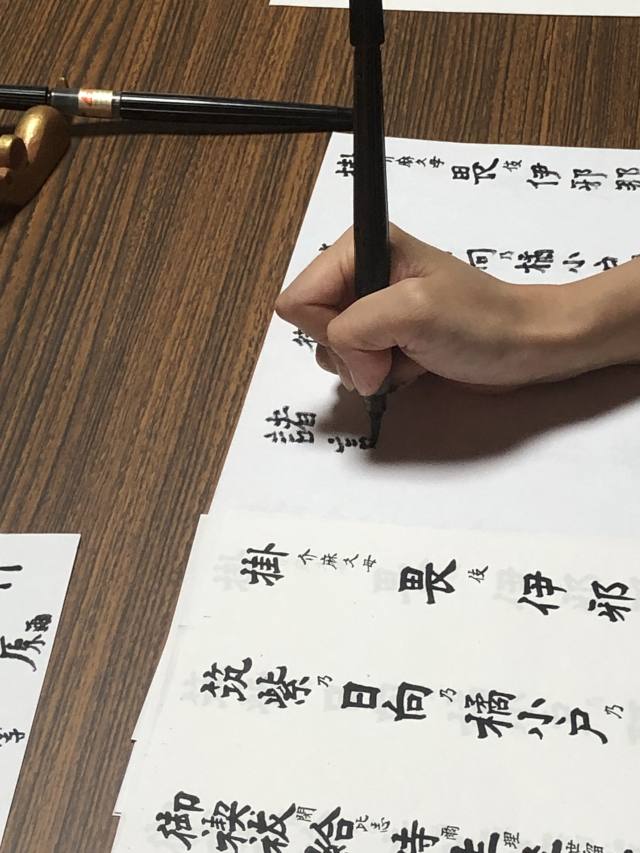 掛介麻久母畏伎伊邪那
向乃橘小
諸
掛介麻久母畏伎伊邪
筑紫乃日向乃橘小戸乃
御禊祓閇給比志時爾生理世留
原爾
等